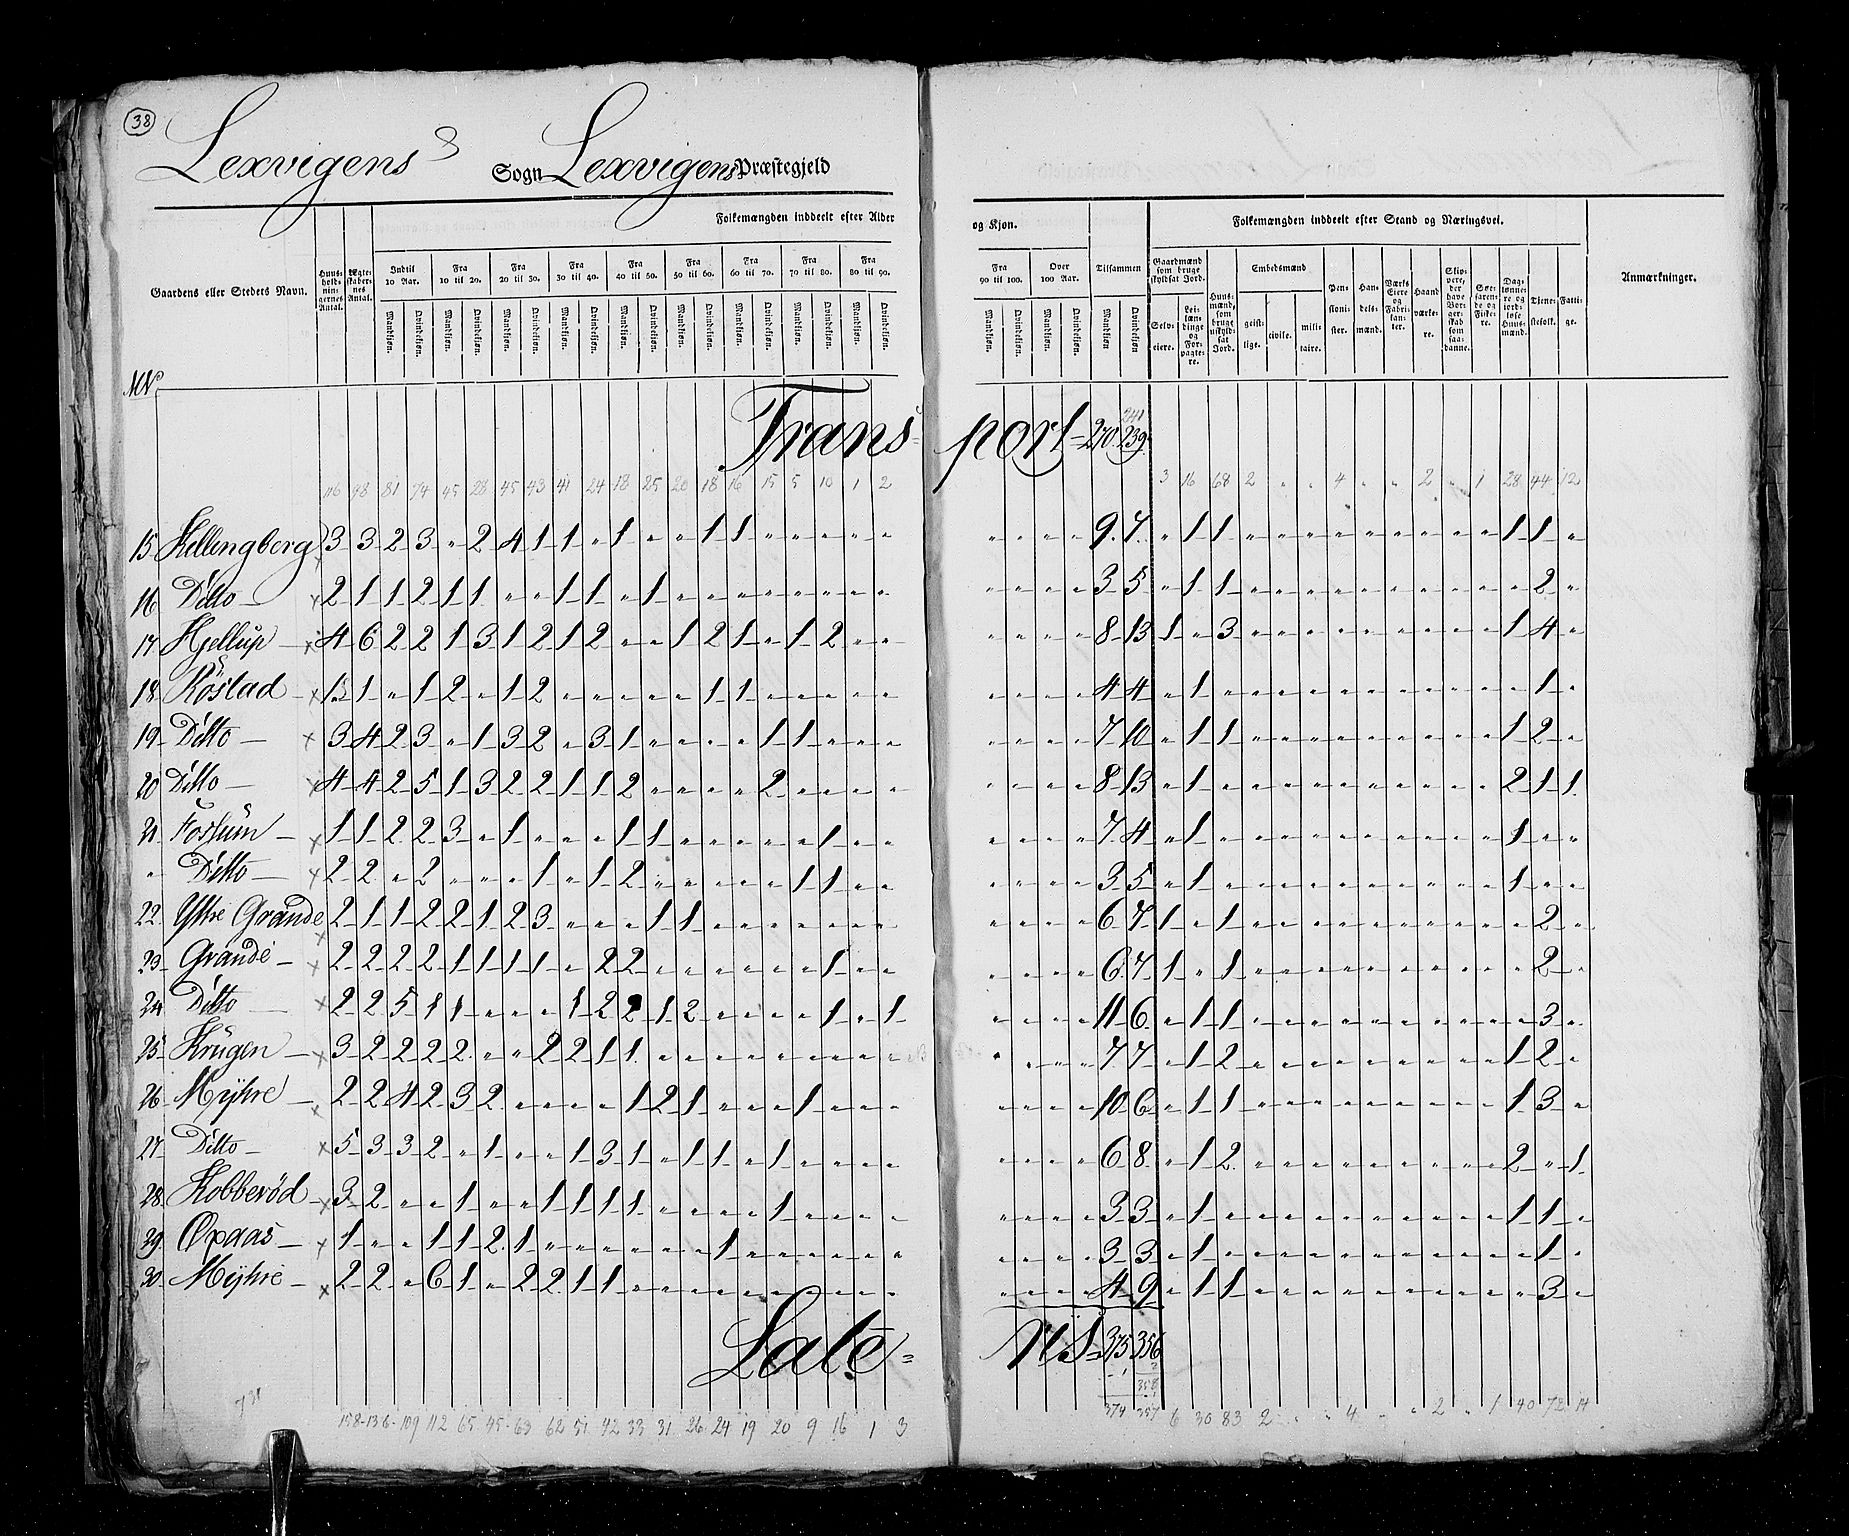 38
Lexvigens Sogn Lexvigens Præstegjeld
Folkemængden inddeelt efter Alder og Kjøn. Folkemængden inddeelt efter Stand og Næringsvei.
Gaardens eller Stedets Navn. Huusholdningernes Antal. Ægteskabernes Antal. Indtil 10 Aar. Fra 10 til 20. Fra 20 til 30. Fra 30 til 40. Fra 40 til 50. Fra 50 til 60. Fra 60 til 70. Fra 70 til 80. Fra 80 til 90. Fra 90 til 100. Over 100 Aar. Tilsammen Gaardmænd som bruge skyldsat Jord. Huusmænd, som bruge uskyldsat Jord. Embedsmænd Pensionister. Handelsmænd. Værks Eiere og Fabrikanter. Haandværkere. Skippere, der have Borgerskab som saadanne. Søefarende og Fiskere. Daglønnere og jordløse Huusmænd. Tjenestefolk. Fattige. Anmærkninger.
Mandkiøn. Qvindekiøn. Mandkiøn. Qvindekiøn. Mandkiøn. Qvindekiøn. Mandkiøn. Qvindekiøn. Mandkiøn. Qvindekiøn. Mandkiøn. Qvindekiøn. Mandkiøn. Qvindekiøn. Mandkiøn. Qvindekiøn. Mandkiøn. Qvindekiøn. Mandkiøn. Qvindekiøn. Mandkiøn. Qvindekiøn. Mandkiøn Qvindekiøn Selveiere. Leilændinge og Forpagtere. geistlige. civile. militaire.
Transport 270. 239. 241
116 98 81 74 45 28 45 43 41 24 18 25 20 18 16 15 5 10 1 2 3 16 68 2 " " 4 " " 2 " 1 28 44 12
15 Hellengberg 3 3 2 3 " 2 4 1 1 " 1 " " 1 1 " " " " " " " " " 9. 7. " 1 1 " " " " " " " " " 1 1 "
16 Ditto x 2 1 1 2 1 1 " " 1 1 " 1 " " " " " " " " " " " " 3 5 " 1 1 " " " " " " " " " " 2 "
17 Hjellup x 4 6 2 2 1 3 1 2 1 2 " " 1 2 1 " 1 2 " " " " " " 8 13 1 " 3 " " " " " " " " " 1 4 "
18 Röstad x 1 " 1 2 " 1 2 " " " " " 1 1 " " " " " " " " " 4 4 " 1 " " " " " " " " " " " 1 "
19 Ditto x 3 4 2 3 " 1 3 2 " 3 1 " " " " 1 1 " " " " " " " 7 10 " 1 1 " " " " " " " " " 1 2 "
20 Ditto x 4 4 2 5 1 3 2 2 1 1 2 " " " " 2 " " " " " " " " 8 13 " 1 " " " " " " " " " " 2 1 1
21 Foslum x 1 1 2 2 3 " 1 " " " 1 1 " " " " " 1 " " " " " " 7 4 " 1 " " " " " " " " " " 1 " "
" Ditto x 2 2 " 2 " " " 1 " 1 2 " " " " " 1 1 " " " " " " 3 5 " 1 " " " " " " " " " " 1 " "
22 Yttre Grande x 2 1 1 2 2 1 2 3 " " " 1 1 " " " " " " " " " " " 6 7 1 " 1 " " " " " " " " " " 2 "
23 Grande x 2 2 2 2 1 1 1 1 " 2 2 " " " " " " 1 " " " " " " 6 7 1 " 1 " " " " " " " " " " 2 "
24 Ditto x 2 2 5 1 1 " " " 1 2 2 1 2 " " " " 1 " 1 " " " " 11 6 " 1 1 " " " " " " " " " " 3 "
25 Krügen x 3 2 2 2 2 " " 2 2 1 1 " " " " " " " " " " " " " 7 7 " 1 2 " " " " " " " " " 1 2 "
26 Mÿhre x 2 2 4 2 3 2 " " " " 1 2 1 " " " 1 " " " " " " " 10 6 " 1 1 " " " " " " " " " 1 3 "
27 Ditto x 5 3 3 2 " 1 " " 1 3 1 " 1 1 " 1 " " " " " " " 6 8 " 1 2 " " " " " " " " " 2 " 1
28 Kobberöd x 3 2 " " 1 " " 1 1 1 1 " " " " 1 " " " " " " " " 3 3 " 1 " " " " " " " " " " 1 1 "
29 Opaas x 1 " " 1 1 2 1 " " " " " " 1 " " " " " " " " " " 3 3 " 1 " " " " " " " " " " " 1 "
30 Mÿhre x 2 2 " 6 1 " 2 2 1 1 " " " " " " " " " " " " " " 4 9 " 1 1 " " " " " " " " " " 3 "
Late= 375 356
2
1 358
374 357
158 136 109 112 65 45 63 62 51 42 33 31 26 24 19 20 9 16 1 3 6 30 83 2 " " 4 " " 2 " 1 40 72 14